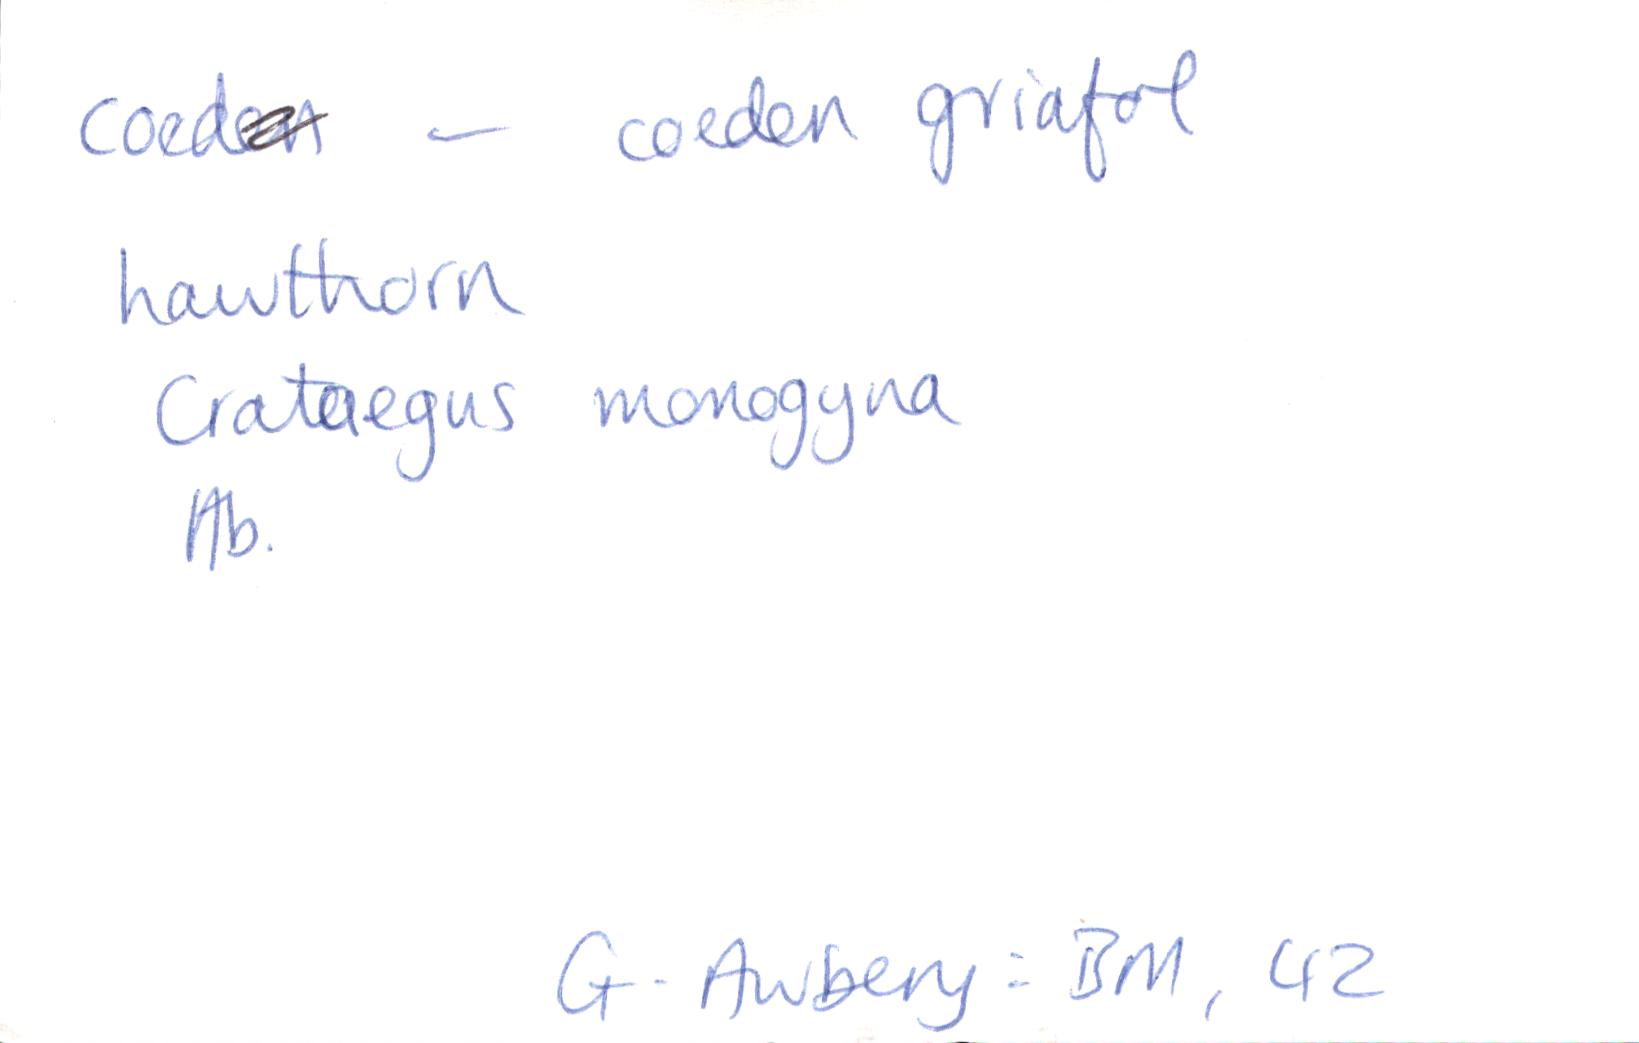 coed — coeden griafol
hawthorn
Crataegus monogyna
Ab.
G. Awbery: BM, 42